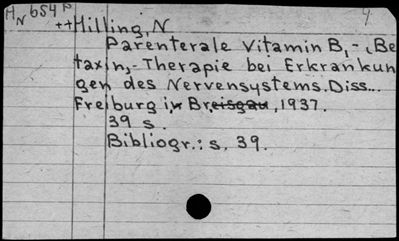 HN 654 P 4
++Hilling, N
Parenterale Vitamin B,-(Be
taxin,-Therapie bei Erkrankun
gen des Nervensystems. Diss...
Freiburg i. Br., 1937.
39 s.
Bibliogr.: s. 39.